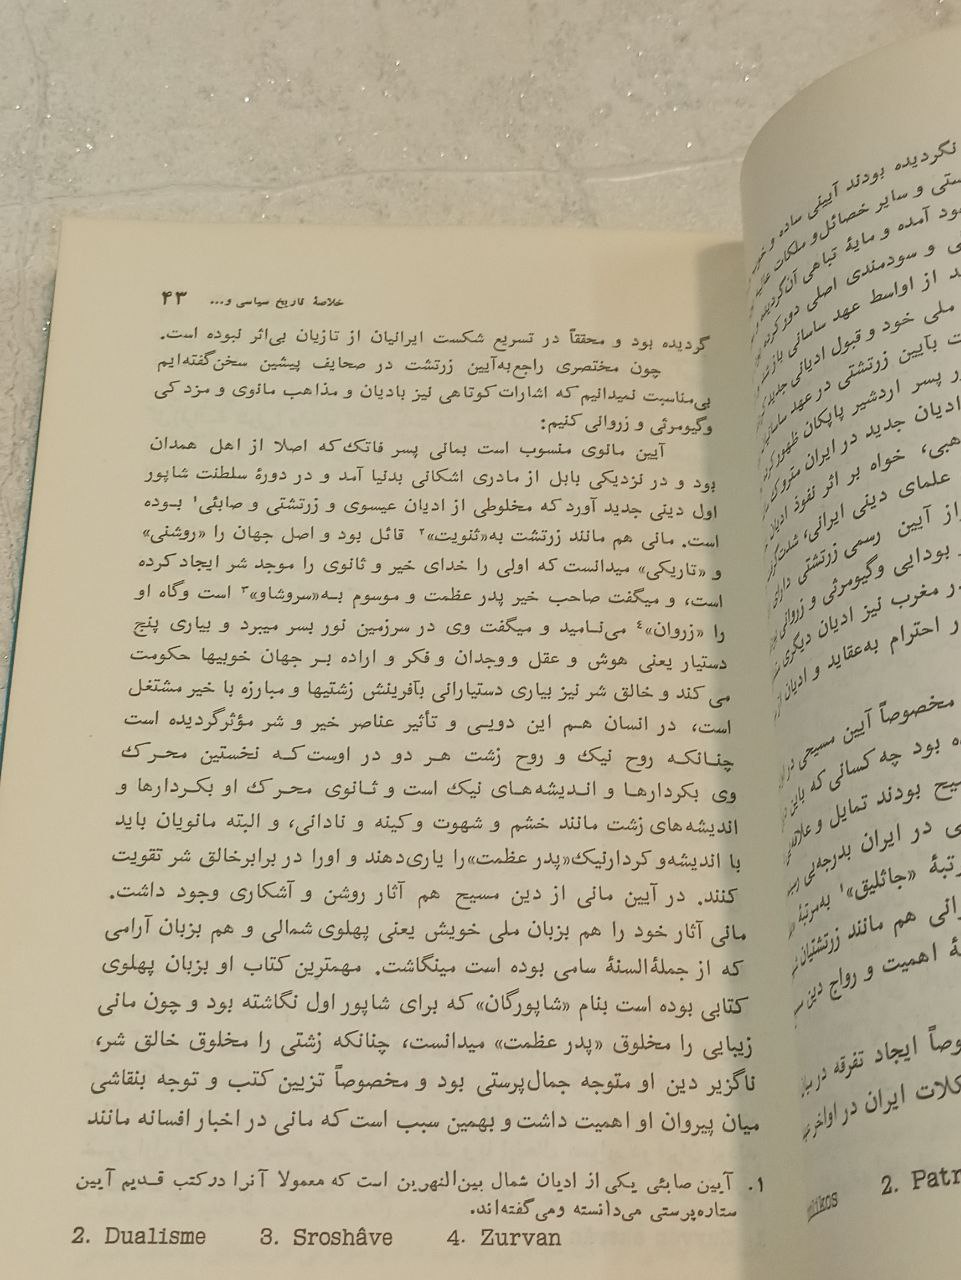 خلاصهٔ تاریخ سیاسی و... ۴۳
گردیده بود و محققاً در تسریع شکست ایرانیان از تازیان بی‌اثر نبوده است.
چون مختصری راجع‌به‌آیین زرتشت در صحایف پیشین سخن‌گفته‌ایم
بی‌مناسبت نمیدانیم که اشارات کوتاهی نیز بادیان و مذاهب مانوی و مزدکی
وگیومرثی و زروانی کنیم:
آیین مانوی منسوب است بمانی پسر فاتك‌که اصلا از اهل همدان
بود و در نزدیکی بابل از مادری اشکانی بدنیا آمد و در دورهٔ سلطنت شاپور
اول دینی جدید آورد که مخلوطی از ادیان عیسوی و زرتشتی و صابئی۱ بوده
است. مانی هم مانند زرتشت به«ثنویت»۲ قائل بود و اصل جهان را «روشنی»
و «تاریکی» میدانست که اولی را خدای خیر و ثانوی را موجد شر ایجاد کرده
است، و میگفت صاحب خیر پدر عظمت و موسوم به«سروشاو»۳ است وگاه او
را «زروان»۴ می‌نامید و میگفت وی در سرزمین نور بسر میبرد و بیاری پنج
دستیار یعنی هوش و عقل ووجدان و فکر و اراده بر جهان خوبیها حکومت
می‌کند و خالق شر نیز بیاری دستیارانی بآفرینش زشتیها و مبارزه با خیر مشتغل
است، در انسان هم این دویی و تأثیر عناصر خیر و شر مؤثرگردیده است
چنانکه روح نیك و روح زشت هر دو در اوست‌که نخستین محرك
وی بکردارها و اندیشه‌های نیك است و ثانوی محرك او بکردارها و
اندیشه‌های زشت مانند خشم و شهوت و کینه و نادانی، و البته مانویان باید
با اندیشه‌و کردارنیك«پدر عظمت»را یاری‌دهند و اورا در برابرخالق شر تقویت
کنند. در آیین مانی از دین مسیح هم آثار روشن و آشکاری وجود داشت.
مانی آثار خود را هم بزبان ملی خویش یعنی پهلوی شمالی و هم بزبان آرامی
که از جملهٔ‌السنهٔ سامی بوده است مینگاشت. مهمترین کتاب او بزبان پهلوی
کتابی بوده است بنام «شاپورگان» که برای شاپور اول نگاشته بود و چون مانی
زیبایی را مخلوق «پدر عظمت» میدانست، چنانکه زشتی را مخلوق خالق شر،
ناگزیر دین او متوجه جمال‌پرستی بود و مخصوصاً تزیین کتب و توجه بنقاشی
میان پیروان او اهمیت داشت و بهمین سبب است که مانی در اخبار افسانه مانند
۱. آیین صابئی یکی از ادیان شمال بین‌النهرین است که معمولا آنرا درکتب قدیم آیین
ستاره‌پرستی می‌دانسته ومی‌گفته‌اند.
2. Dualisme 3. Sroshâve 4. Zurvan
نگردیده بودند آیینی ساده و
و سایر خصائل و ملکات
آمده و مایهٔ تباهی آن‌گردیده
و سودمندی اصلی دور
از اواسط عهد ساسانی
ملی خود و قبول ادیانی جدید
بآیین زرتشتی در عهد
پسر اردشیر پاپکان ظهور
ادیان جدید در ایران
خواه بر اثر نفوذ ادیان
علمای دینی ایرانی،
از آیین رسمی زرتشتی
بودایی وگیومرثی و زروانی
مغرب نیز ادیان دیگری
احترام به‌عقاید و ادیان
مخصوصاً آیین مسیحی در
بود چه کسانی که
بودند تمایل و
در ایران بدرجه‌یی
«جاثلیق»۱ به‌مرتبهٔ
هم مانند زرتشتیان
اهمیت و رواج دین
ایجاد تفرقه در
ایران در اواخر
2. Patr